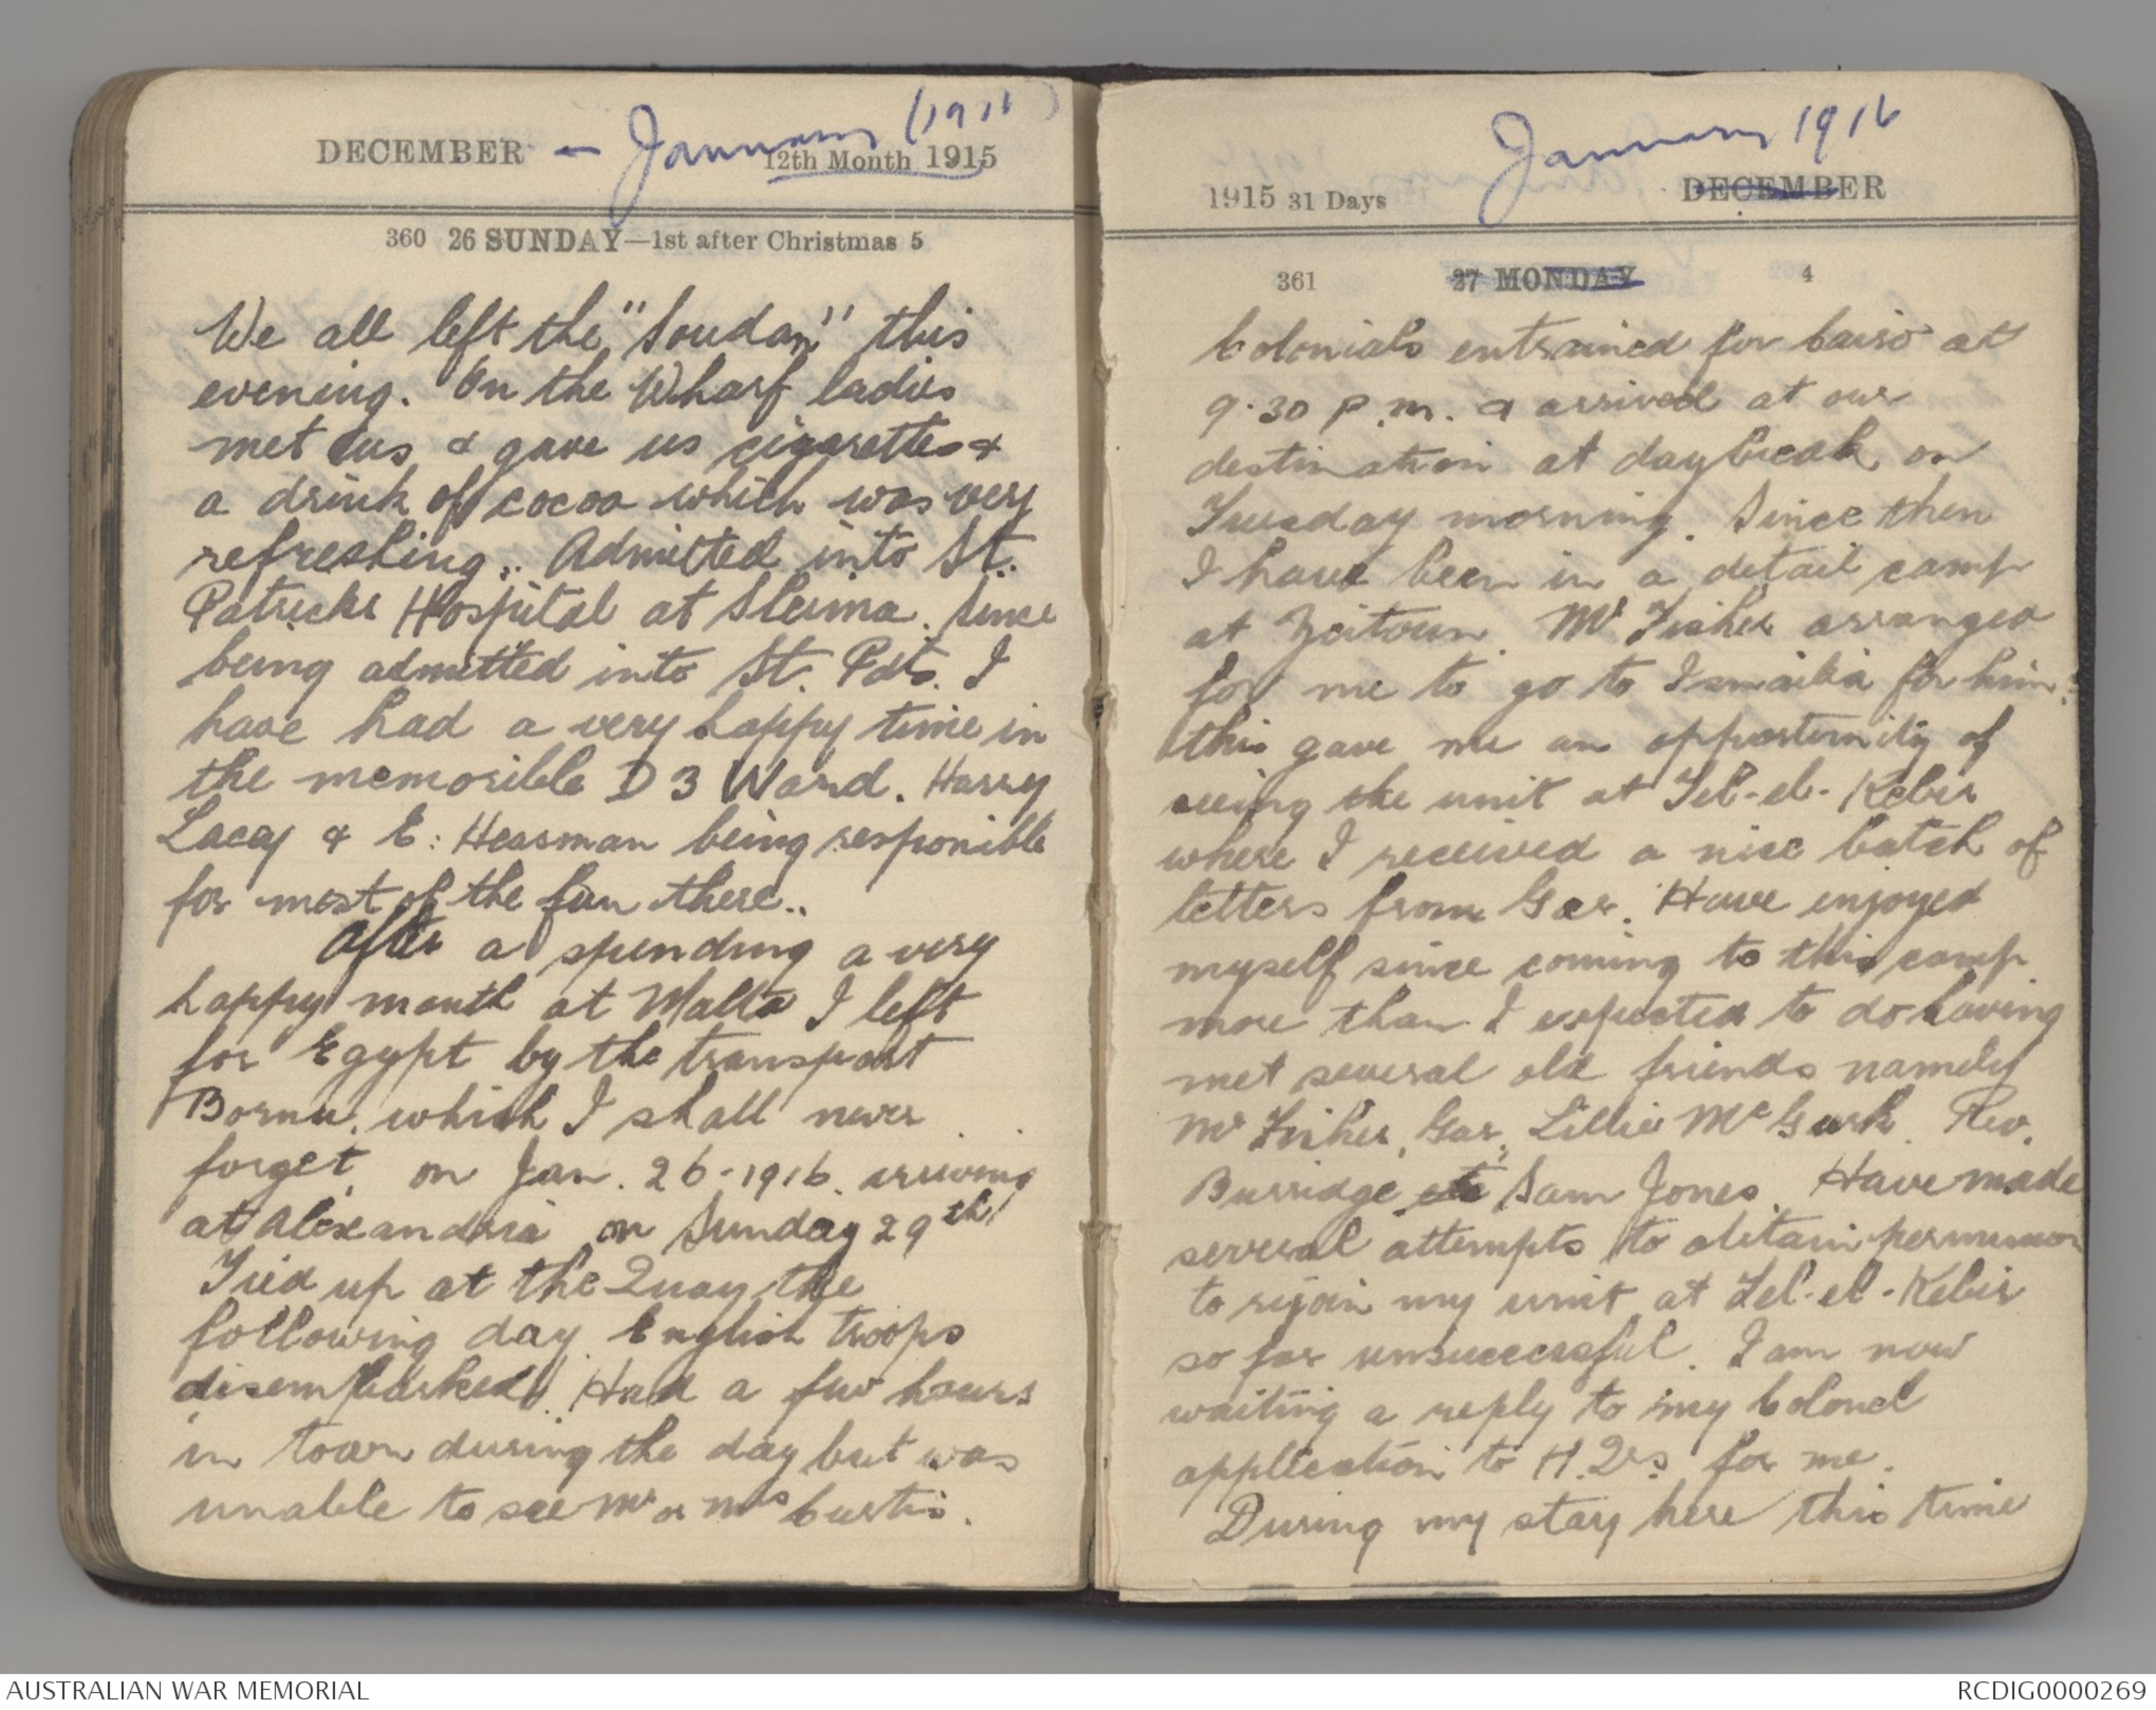 DECEMBER - January (1916)
12th Month 1915
360 26 SUNDAY—1st after Christmas 5
We all left the "Soudan" this
evening. On the Wharf ladies
met us & gave us cigarettes &
a drink of cocoa which was very
refreshing.. Admitted into St.
Patricks Hospital at Sleima. Since
being admitted into St. Pats. I
have had a very happy time in
the memorible D 3 Ward. Harry
Lacey & E. Heasman being responible
for most of the fun there..
After a spending a very
happy month at Malta I left
for Egypt by the transport
Bornu. which I shall never
forget, on Jan. 26-1916. arriving
at Alexandria on Sunday 29th
Tied up at the Quay the
following day. English troops
disembarked. Had a few hours
in town during the day but was
unable to see Mr or Mrs Curtis.
January 1916
1915 31 Days DECEMBER
361 27 MONDAY 4
Colonials entrained for Cairo at
9.30 p.m. & arrived at our
destination at daybreak on
Tuesday morning. Since then
I have been in a detail camp
at Zeitoun. Mr Fisher arranged
for me to go to Ismailia for him.
this gave me an opportunity of
seeing the unit at Tel-el-Kebir
where I received a nice batch of
letters from Ger. Have enjoyed
myself since coming to this camp
more than I expected to do having
met several old friends namely
Mr Fisher, Gus, Lillie McGurk. Rev.
Burridge etc Sam Jones. Have made
several attempts to obtain permission
to rejoin my unit at Tel-el-Kebir
so far unsuccessful. I am now
waiting a reply to my Colonel
application to H.Qrs. for me.
During my stay here this time
AUSTRALIAN WAR MEMORIAL
RCDIG0000269